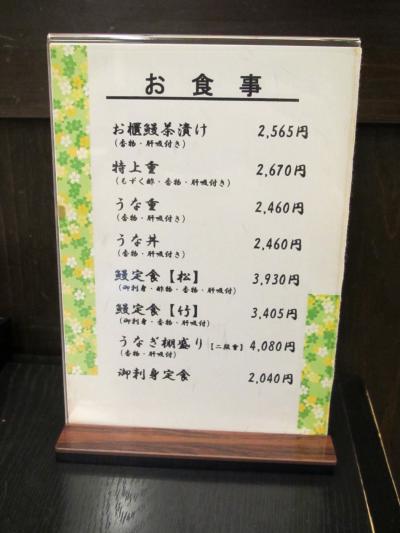 お食事
お櫃鰻茶漬け 2,565円
(香物・肝吸付き)
特上重 2,670円
(もずく酢・香物・肝吸付き)
うな重 2,460円
(香物・肝吸付き)
うな丼 2,460円
(香物・肝吸付き)
鰻定食【松】 3,930円
(御刺身・酢物・香物・肝吸付)
鰻定食【竹】 3,405円
(御刺身・香物・肝吸付)
うなぎ棚盛り【二段重】 4,080円
(香物・肝吸付)
御刺身定食 2,040円